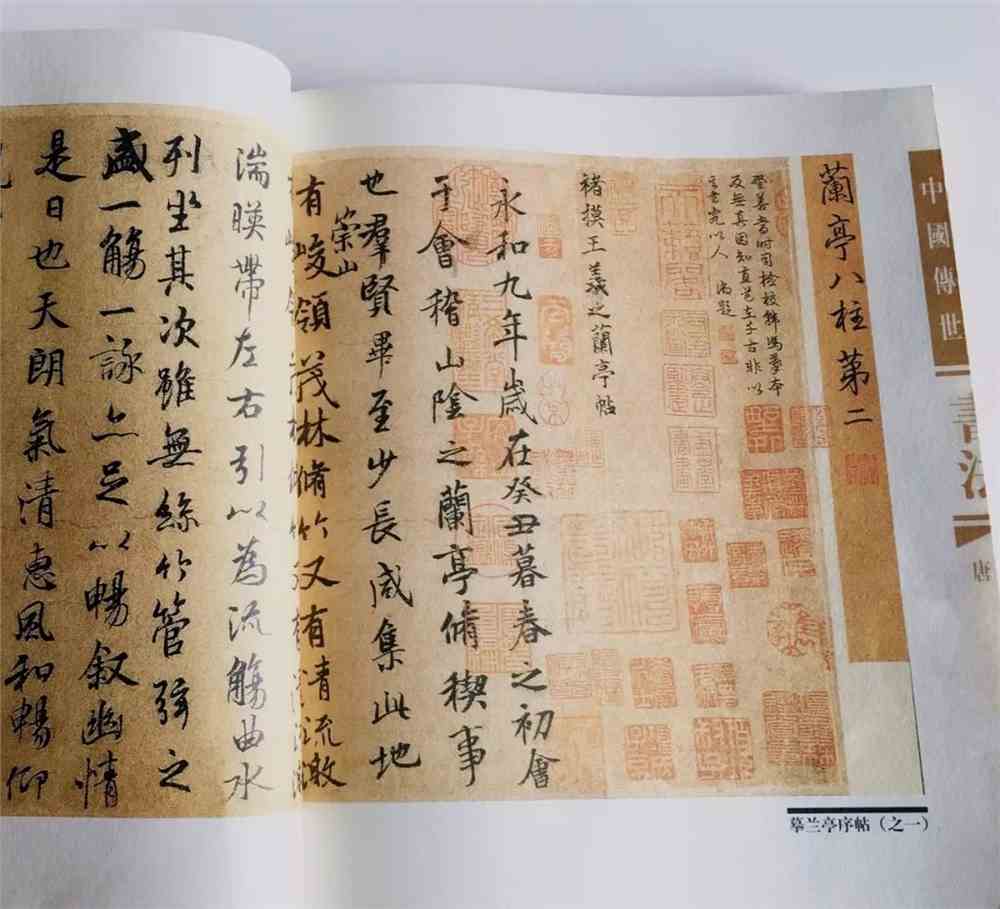 中國傳世
書法
唐
蘭亭八柱第二
及無真因知直道在千古非以
褚摸王羲之蘭亭帖
永和九年歲在癸丑暮春之初會
于會稽山陰之蘭亭脩稧事
也羣賢畢至少長咸集此地
有崇山峻領茂林脩竹又有清流激
湍暎帶左右引以為流觴曲水
列坐其次雖無絲竹管弦之
盛一觴一詠亦足以暢敘幽情
是日也天朗氣清惠風和暢仰
摹兰亭序帖（之一）